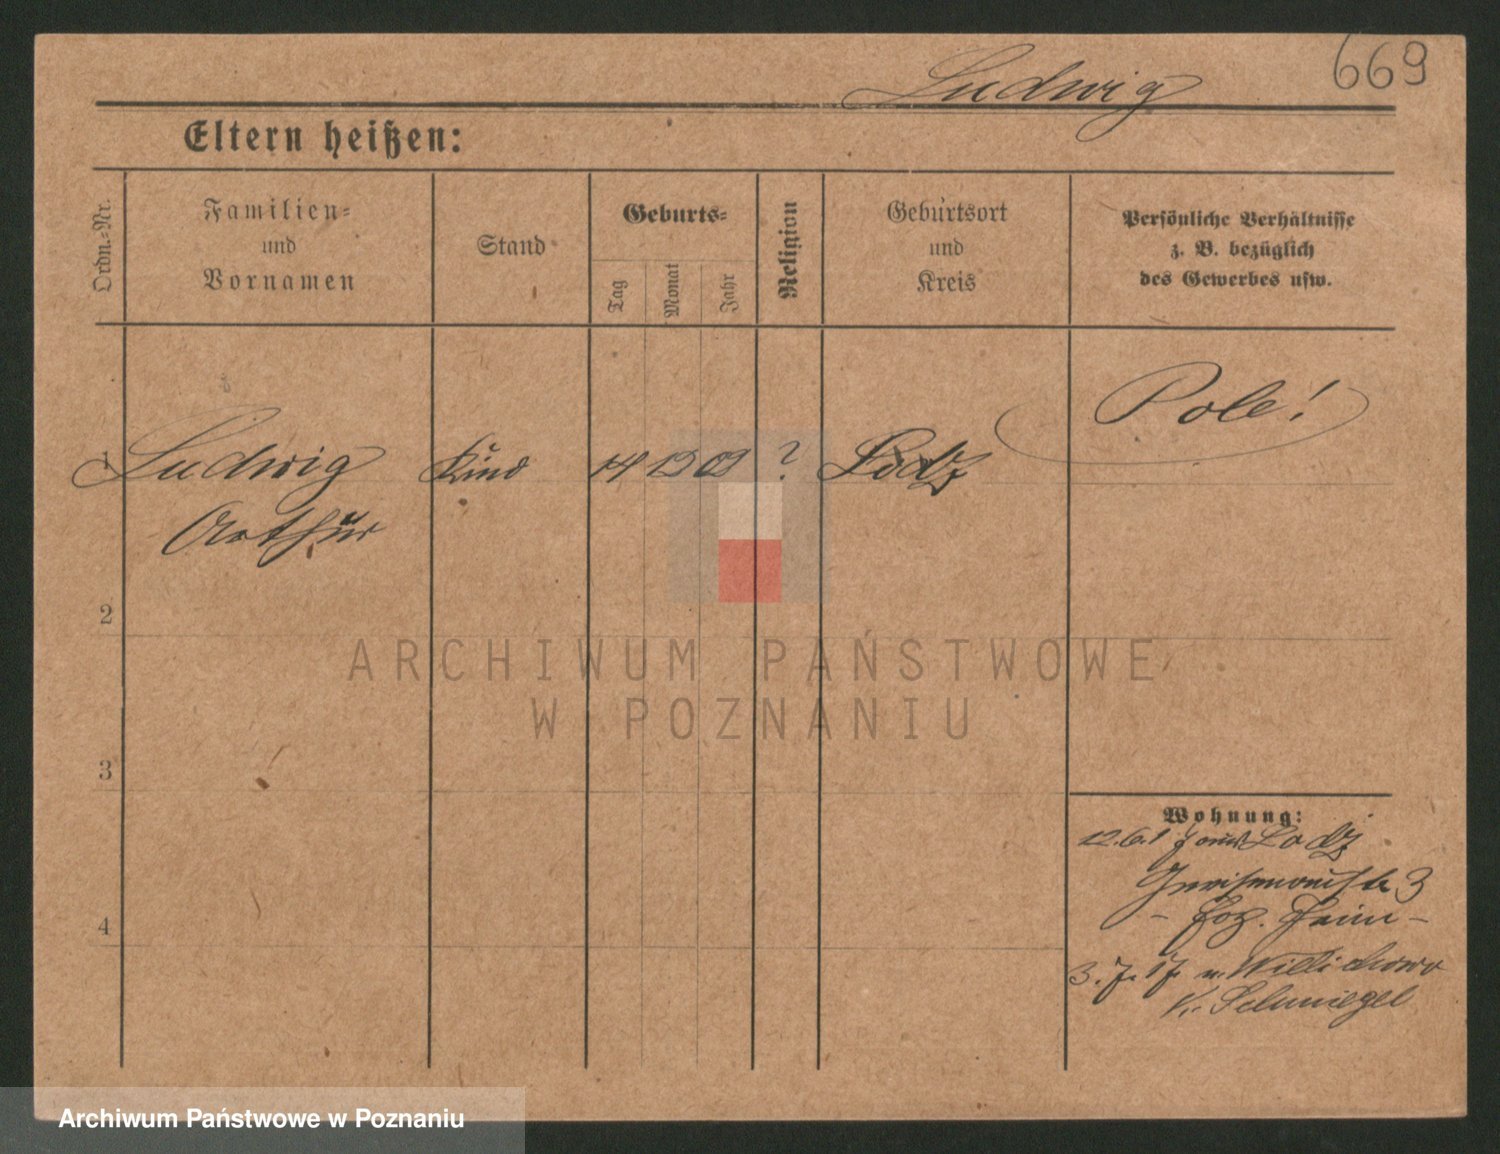 669
Ludwig
Eltern heißen:
Ordn.=Nr.
Familien=
und
Vornamen
Stand
Geburts=
Tag
Monat
Jahr
Religion
Geburtsort
und
Kreis
Persönliche Verhältnisse
z. B. bezüglich
des Gewerbes usw.
Pole!
1 Ludwig Kind 14 12 09 ? Lodz
Arthur
2
3
4
ARCHIWUM PAŃSTWOWE
W POZNANIU
Wohnung:
12.6.17 aus Lodz
Gneisenaustr 3
3. 7. 17. n. Willichowo
Kr. Schmiegel
Archiwum Państwowe w Poznaniu